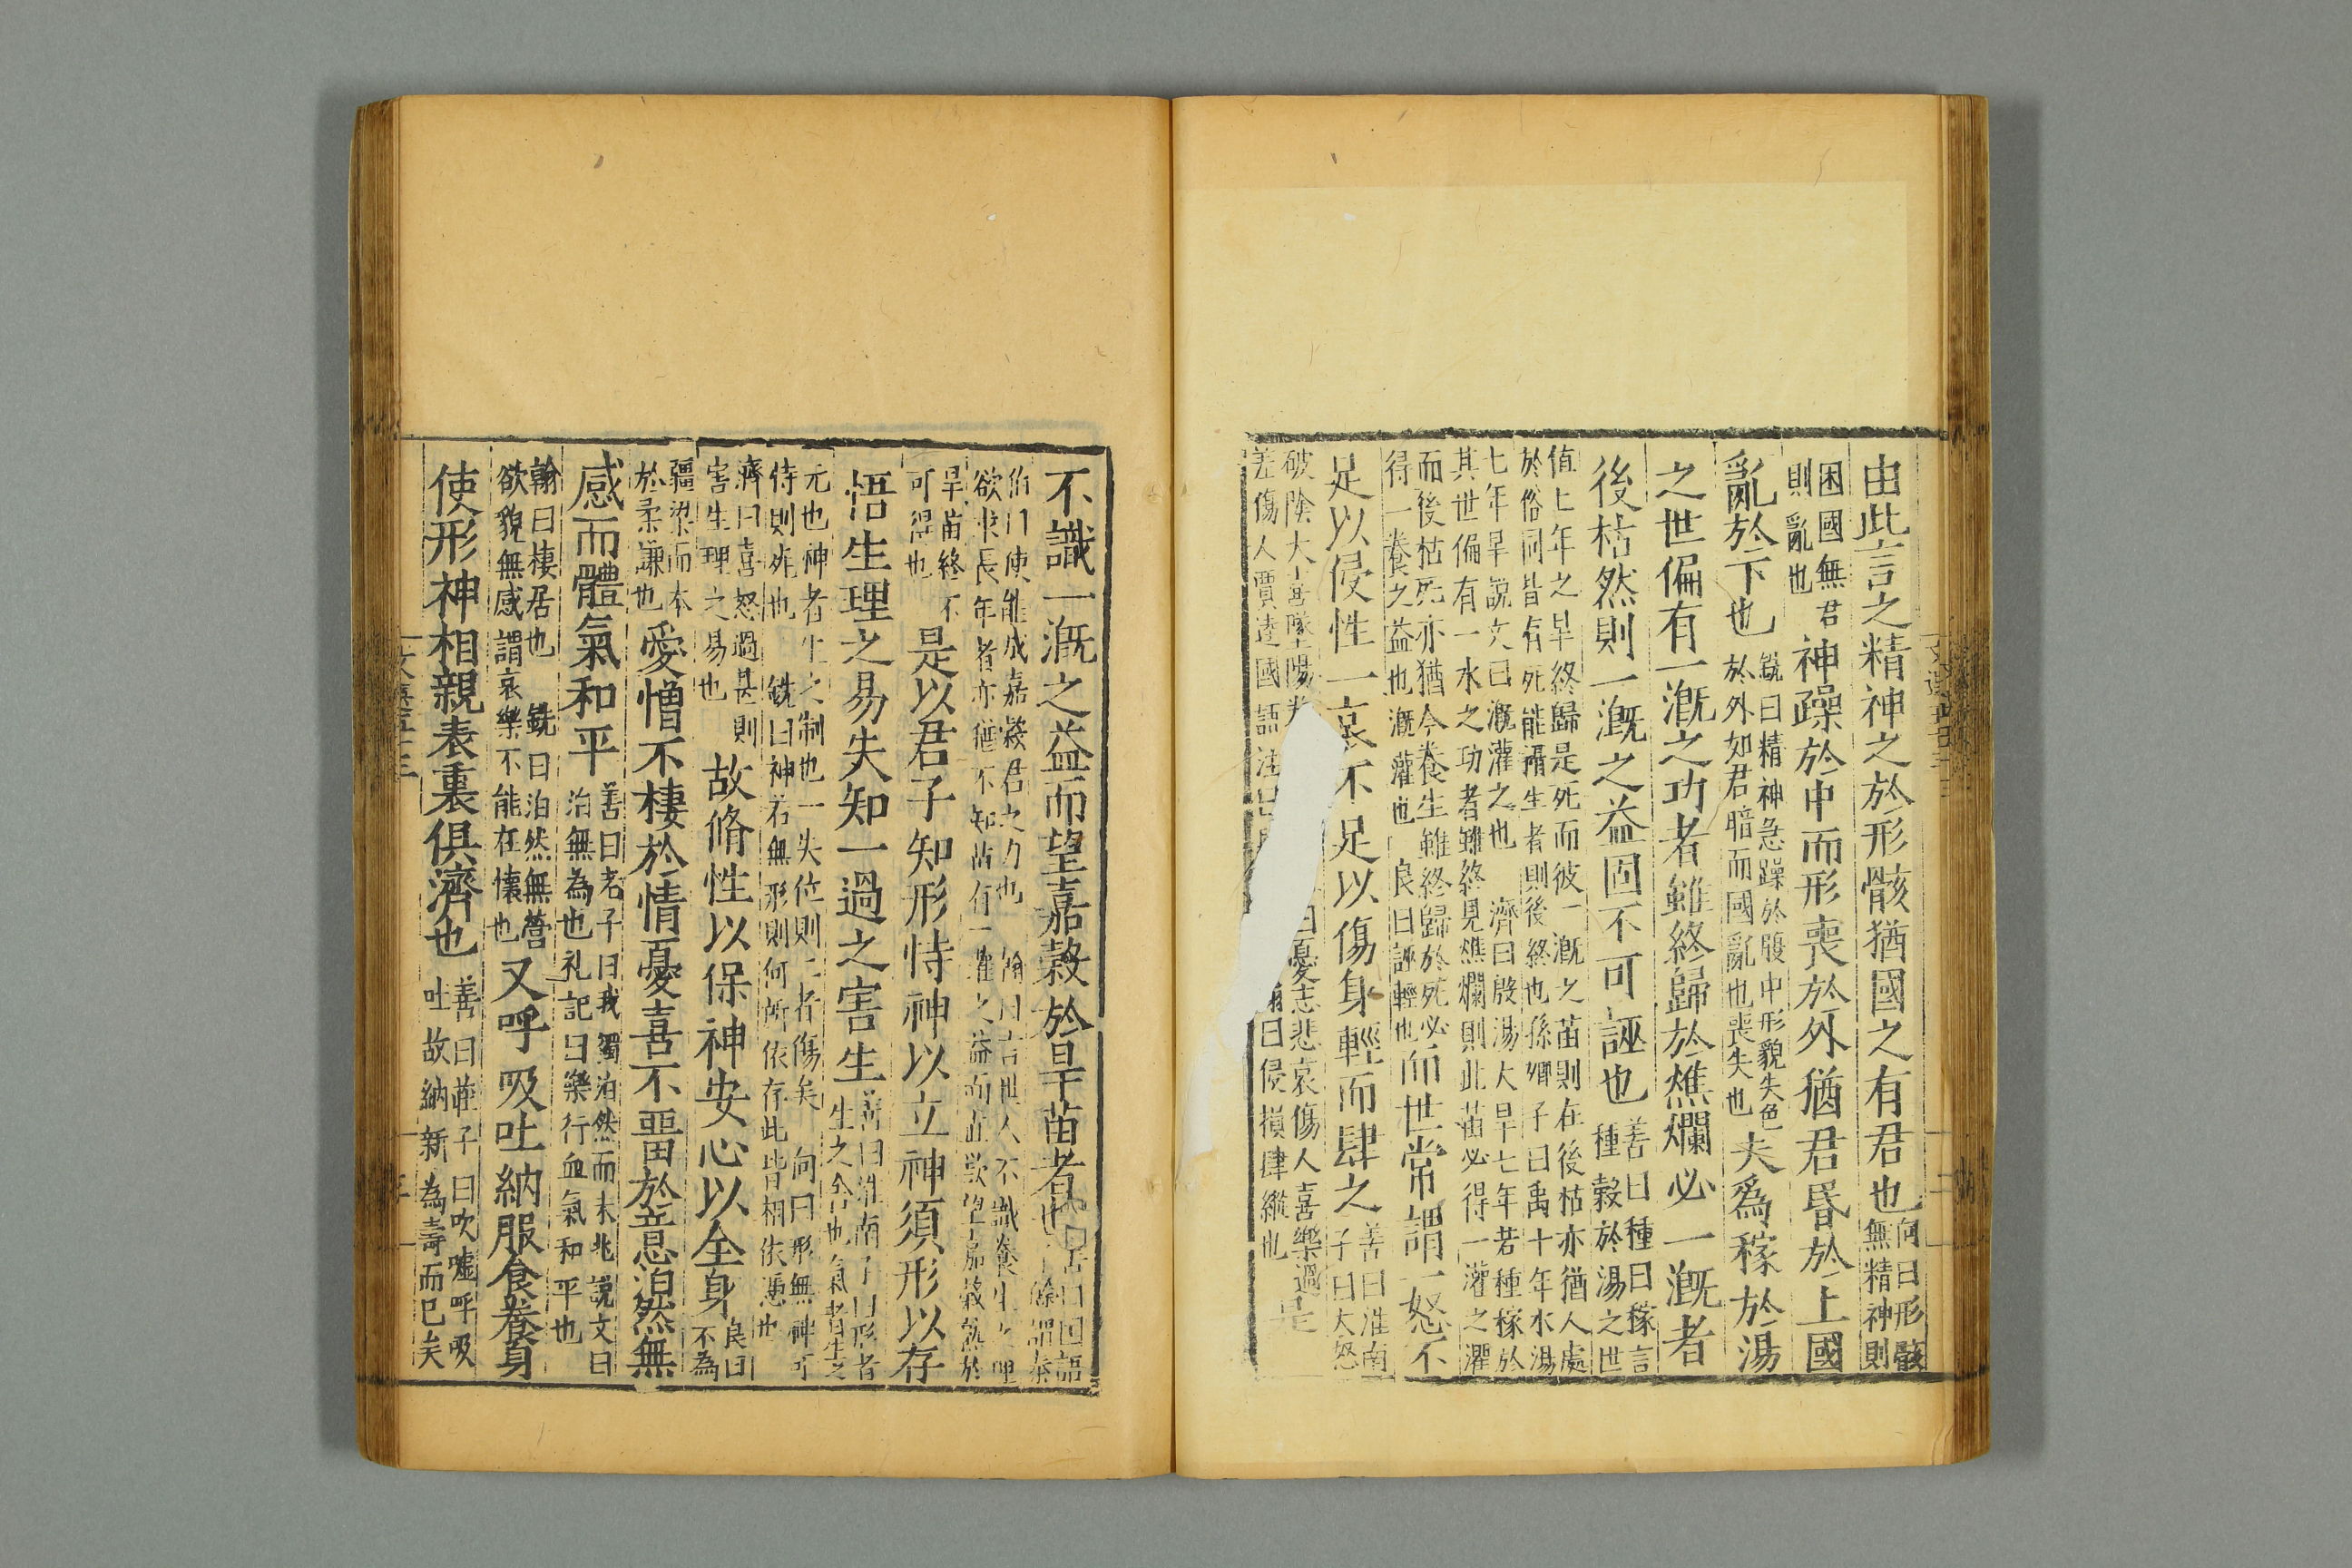 由此言之精神之於形骸猶國之有君也向曰形骸無精神則
困國無君則亂也神躁於中而形喪於外猶君昏於上國
亂於下也銑曰精神急躁於腹中形貌失色於外如君暗而國亂也喪失也夫為稼於湯
之世偏有一漑之功者雖終歸於燋爛必一漑者
後枯然則一漑之益固不可誣也善曰種曰稼言種穀於湯之世
值七年之旱終歸是死而彼一漑之苗則在後枯亦猶人處於俗同皆有死能攝生者則後終也孫卿子曰禹十年水湯
七年旱說文曰漑灌之也濟曰殷湯大旱七年若種稼於其世偏有一水之功者雖終見燋爛則此苗必得一灌之濯
而後枯死亦猶今養生雖終歸於死必得一養之益也漑灌也良曰誣輕也而世常謂一怒不
足以侵性一哀不足以傷身輕而肆之善曰淮南子曰大怒
破陰大喜墜陽曰憂志悲哀傷人喜樂過差傷人賈逵國語注曰曰侵損肆縱也是
不識一漑之益而望嘉穀於旱苗者也
伯曰使能成嘉穀君之力也翰曰言世人不識養生之理欲求長年者亦猶不知苗有一灌之益而欲望嘉穀熟於
旱苗終不可得也是以君子知形恃神以立神須形以存
悟生理之易失知一過之害生善曰淮南子曰形者生之舍也氣者生之
元也神者生之制也一失位則二者傷矣向曰形無神可侍則死也銑曰神若無形則何所依存此皆相依憑也
濟曰喜怒過甚則害生理之易也故脩性以保神安心以全身良曰不為
彊梁而本於柔謙也愛憎不棲於情憂喜不畱於意泊然無
感而體氣和平善曰老子曰我獨泊然而未兆說文曰泊無為也礼記曰樂行血氣和平也
翰曰棲居也銑曰泊然無營欲貌無感謂哀樂不能在懷也又呼吸吐納服食養身
使形神相親表裏俱濟也善曰莊子曰吹噓呼吸吐故納新為壽而已矣